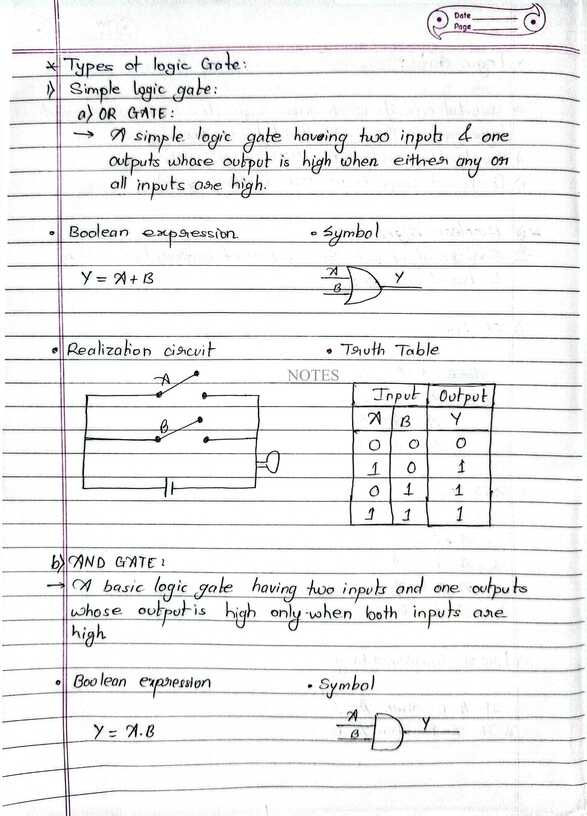 Date
Page
* Types of logic Gate:
1) Simple logic gate:
a) OR GATE:
→ A simple logic gate having two inputs & one
outputs whose output is high when either any or
all inputs are high.
• Boolean expression • Symbol
Y = A + B
A
B
Y
• Realization circuit • Truth Table
NOTES
A
B
Input Output
A B Y
0 0 0
1 0 1
0 1 1
1 1 1
b) AND GATE:
→ A basic logic gate having two inputs and one outputs
whose output is high only when both inputs are
high
• Boolean expression • Symbol
Y = A.B
A
B
Y